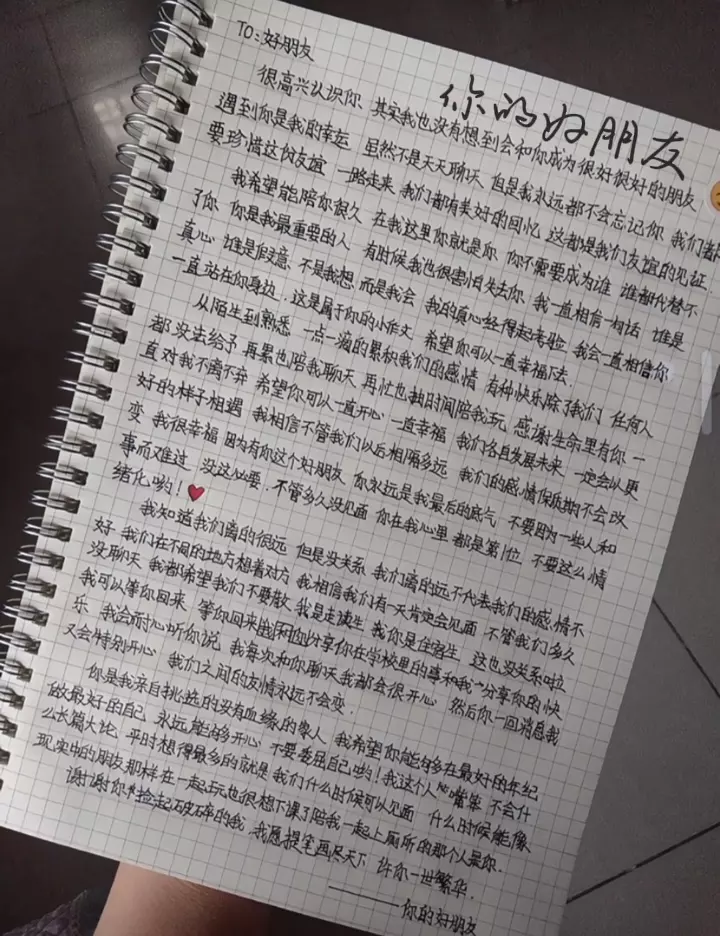 TO:好朋友
你的好朋友
很高兴认识你 其实我也没有想到会和你成为很好很好的朋友
遇到你是我的幸运 虽然不是天天聊天 但是我永远都不会忘记你 我们都
要珍惜这份友谊 一路走来 我们都有美好的回忆 这都是我们友谊的见证.
我希望能陪你很久 在我这里你就是你 你不需要成为谁 谁都代替不
了你 你是我最重要的人 有时候我也很害怕失去你 我一直相信一句话 谁是
真心 谁是假意 不是我想 而是我会 我的真心经得起考验 我会一直相信你
一直站在你身边.这是属于你的小作文 希望你可以一直幸福下去.
从陌生到熟悉 一点一滴的累积我们的感情 有种快乐除了我们 任何人
都没法给予 再累也陪我聊天 再忙也抽时间陪我玩 感谢生命里有你 一
直对我不离不弃 希望你可以一直开心 一直幸福 我们各自发展未来 一定会以更
好的样子相遇 我相信不管我们以后相隔多远 我们的感情保质期不会改
变 我很幸福 因为有你这个好朋友 你永远是我最后的底气 不要因为一些人和
事而难过 没这必要.不管多久没见面 你在我心里 都是第1位 不要这么情
绪化哟!❤
我知道我们离的很远 但是没关系 我们离的远不代表我们的感情不
好 我们在不同的地方想着对方 我相信我们有一天肯定会见面 不管我们多久
没聊天 我都希望我们不要散 我是走读生 我你是住宿生 这也没关系啦
我可以等你回来 等你回来分享你在学校里的事和我 分享你的快
乐 我会耐心听你说 我每次和你聊天我都会很开心 然后你一回消息我
又会特别开心 我们之间的友情永远不会变.
你是我亲自挑选的没有血缘的家人 我希望你能够在最好的年纪
做最好的自己 永远能够开心 不要委屈自己哟!我这个人嘴笨 不会什
么长篇大论 平时想得最多的就是我们什么时候可以见面 什么时候能像
现实中的朋友那样在一起玩也很想下课了陪我一起上厕所的那个人是你.
谢谢你捡起破碎的我 我愿提笔画尽天下 许你一世繁华.
———你的好朋友